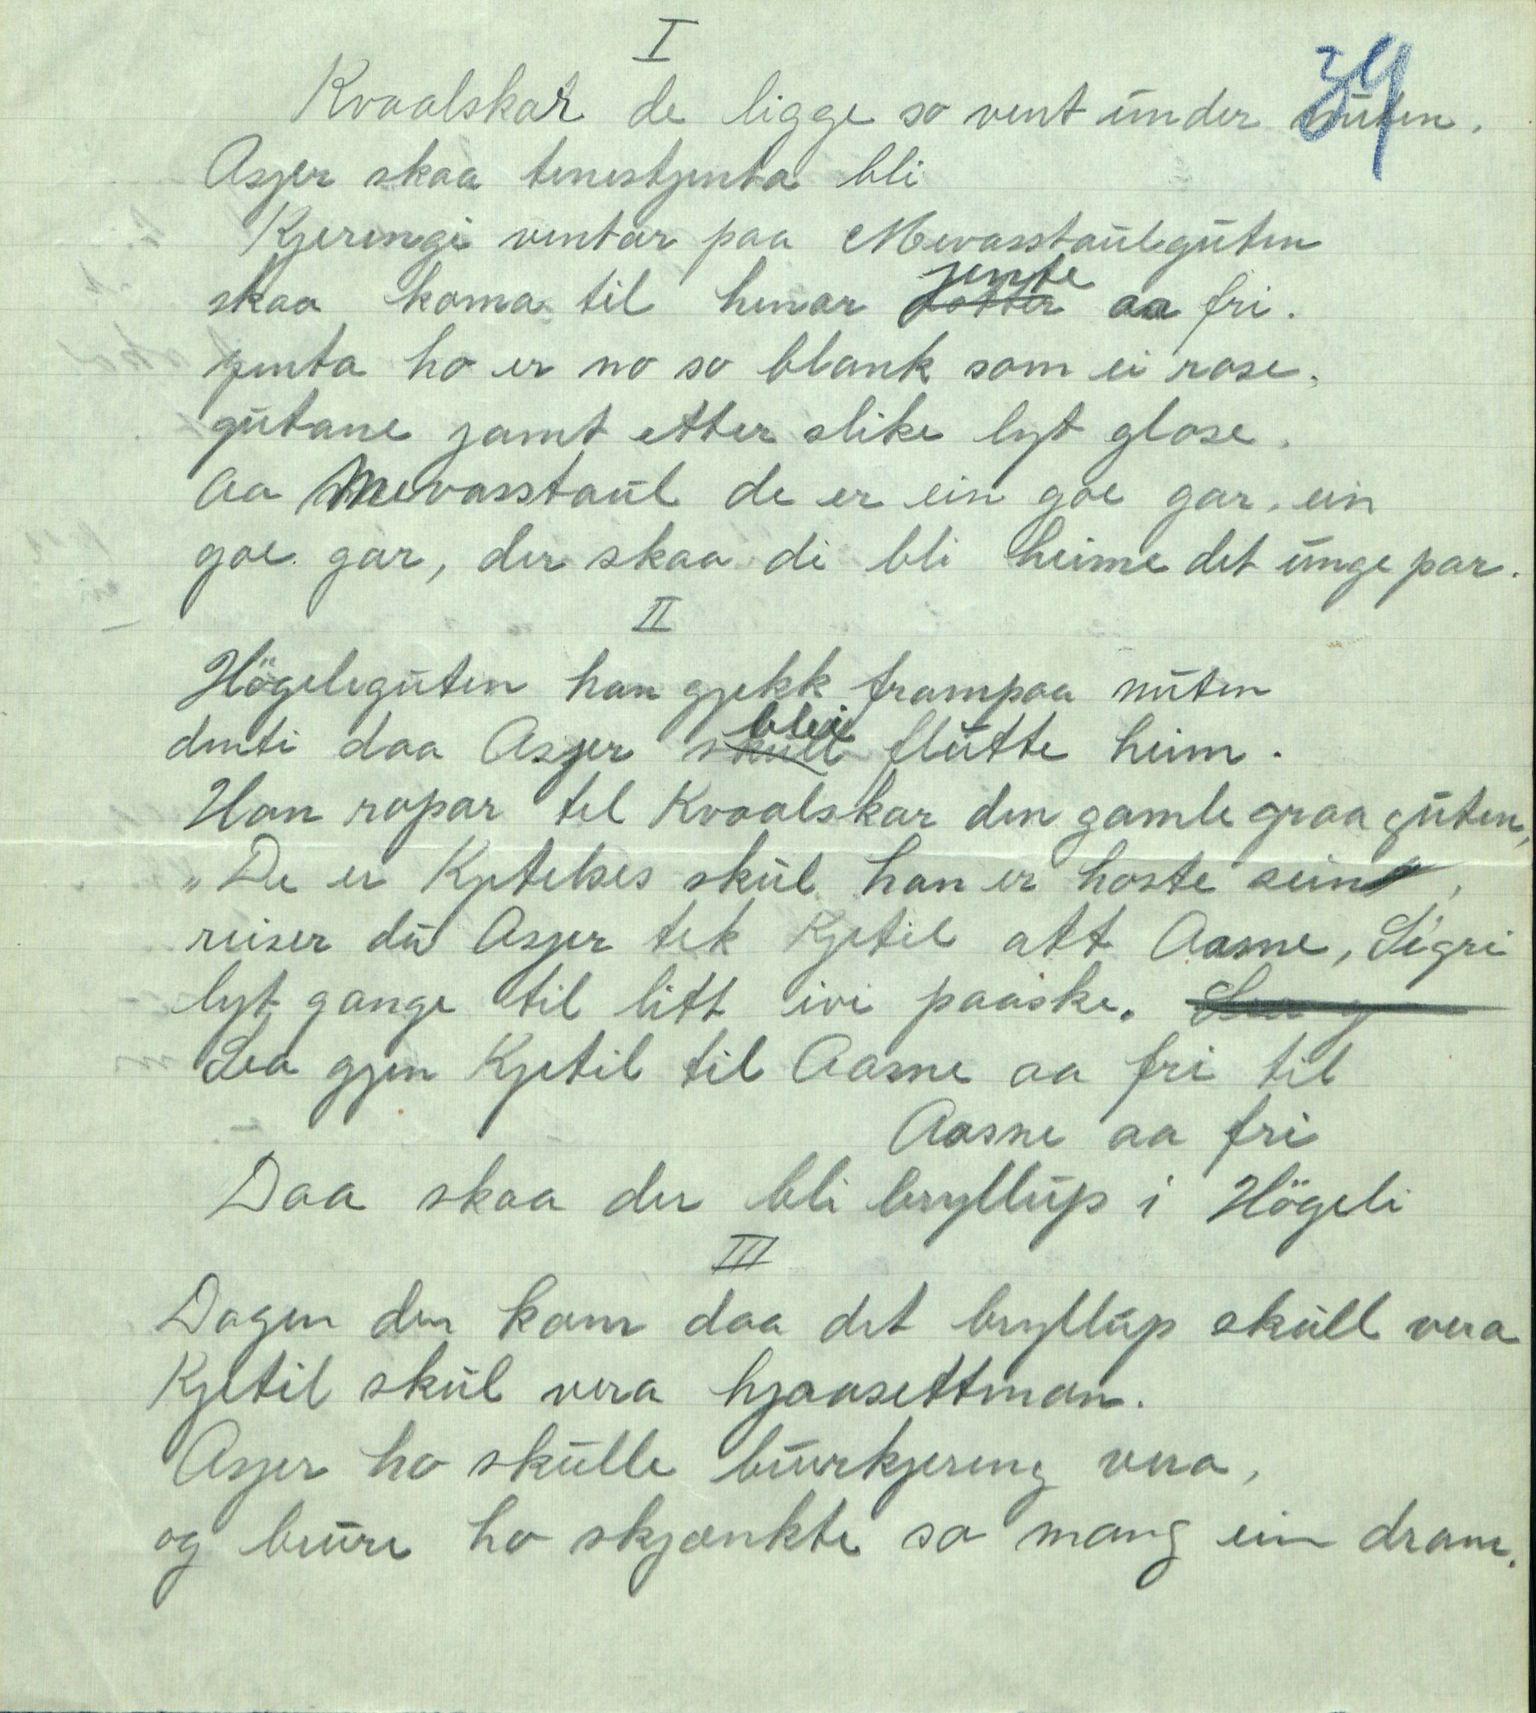 I
39
Kvaalskar de ligge so vent under nuten.
Asjer skaa tenestjenta bli
Kjeringi ventar paa Mevasstaulguten
skaa koma til henar dotter jente aa fri.
jenta ho er no so blank som ei rose,
gutane jamt etter slike lyt glose.
Aa Mevasstaul de er ein goe gar, ein
goe gar, der skaa di bli heime det unge par.
II
Högeliguten han gjekk frampaa nuten
denti daa Asjer skull blei flutte heim.
Han ropar til Kvaalskar den gamle graa guten,
"De er Kjetelses skul han er hoste sein,
reiser du Asjer tek Kjetil att Aasne, Sigri
lyt gange til litt ivi paaske.
Lea gjen Kjetil til Aasne aa fri til
Aasne aa fri
Daa skaa der bli bryllup i Högeli
III
Dagen den kom daa det bryllup skull vera
Kjetil skul vera hjaasettman.
Asjer ho skulle buurkjering vera,
og buure ho skjænkte so mang ein dram.